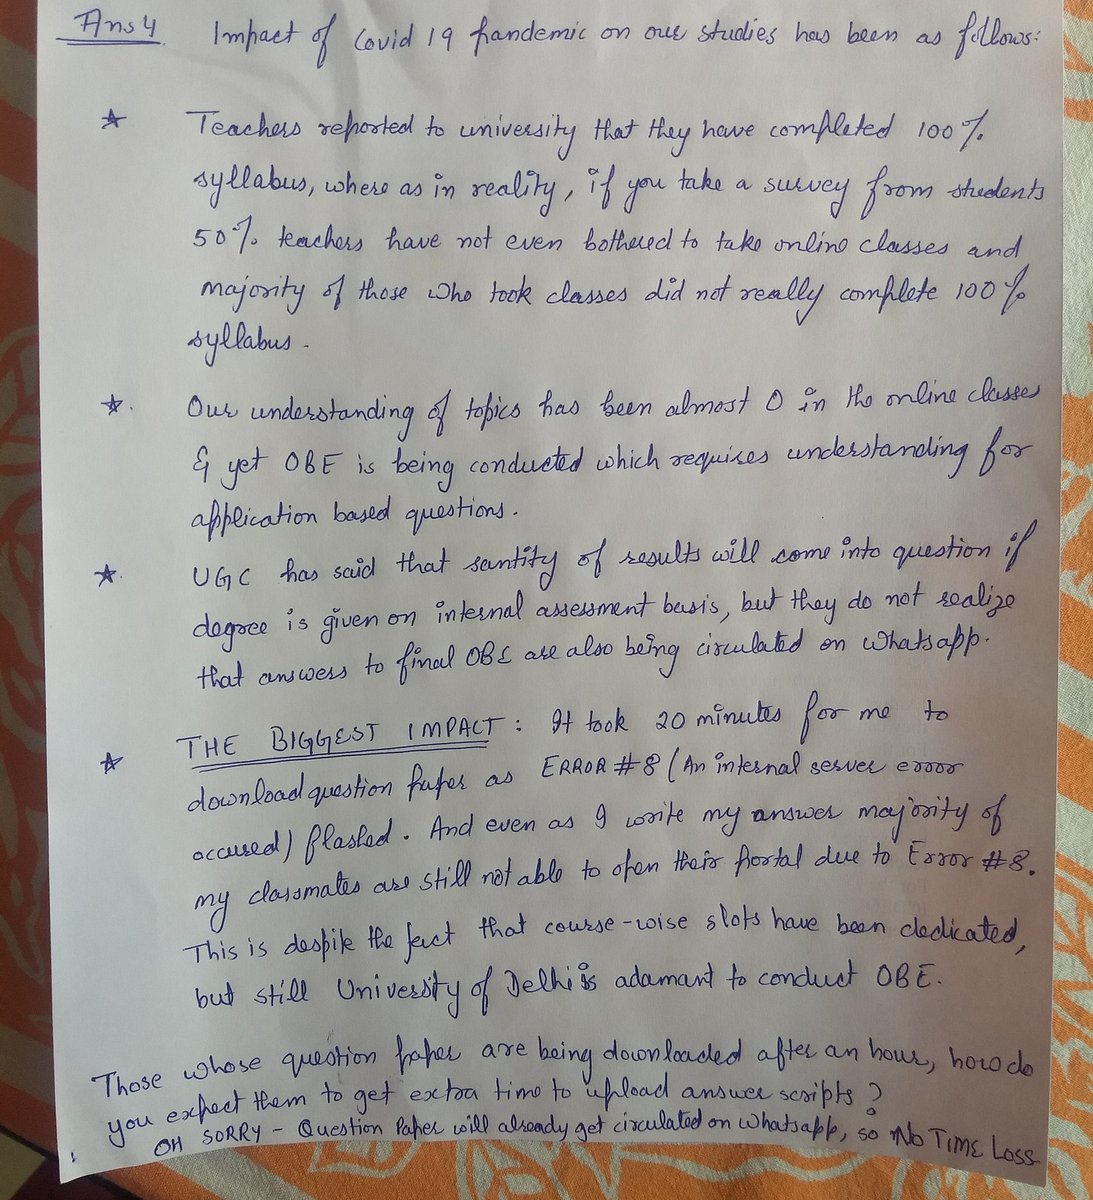 Ans 4 Impact of Covid 19 pandemic on our studies has been as follows:
☆ Teachers reported to university that they have completed 100%
syllabus, where as in reality, if you take a survey from students
50% teachers have not even bothered to take online classes and
majority of those who took classes did not really complete 100%
syllabus.
☆. Our understanding of topics has been almost 0 in the online classes
& yet OBE is being conducted which requires understanding for
application based questions.
☆. UGC has said that santity of results will come into question if
degree is given on internal assessment basis, but they do not realize
that answers to final OBE are also being circulated on whatsapp.
☆ THE BIGGEST IMPACT : It took 20 minutes for me to
download question paper as ERROR #8 (An internal server error
occured) flashed. And even as I write my answer majority of
my classmates are still not able to open their portal due to Error #8.
This is despite the fact that course-wise slots have been dedicated,
but still University of Delhi is adamant to conduct OBE.
Those whose question paper are being downloaded after an hour, how do
you expect them to get extra time to upload answer scripts?
OH SORRY - Question Paper will already get circulated on whatsapp, so NO TIME LOSS